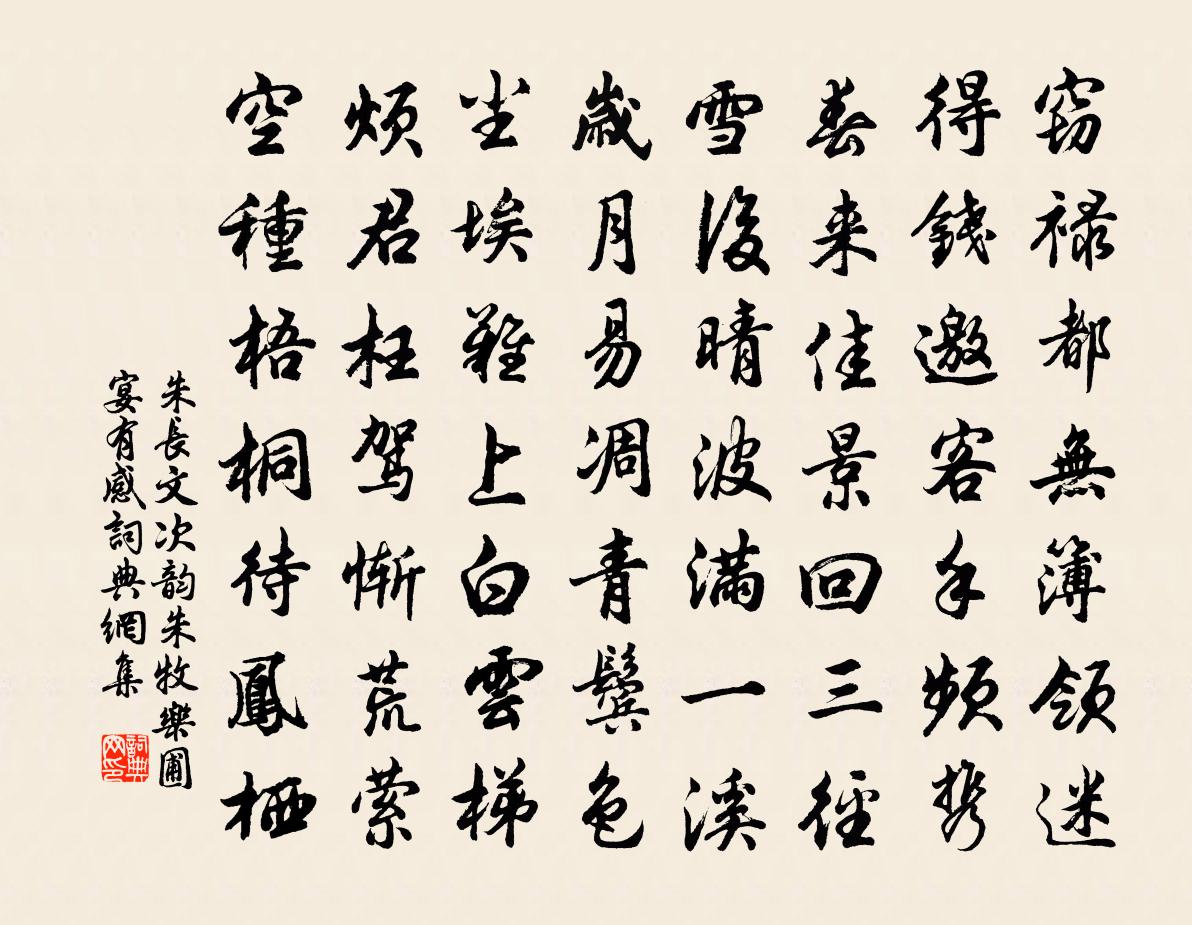 窃禄都無簿領迷
得錢邀客手頻携
春来佳景回三徑
雪後晴波满一溪
歲月易凋青鬓色
尘埃難上白雲梯
煩君枉驾惭荒萦
空種梧桐待鳳栖
朱長文次韵朱牧樂圃
宴有感詞典網集
詞典网印